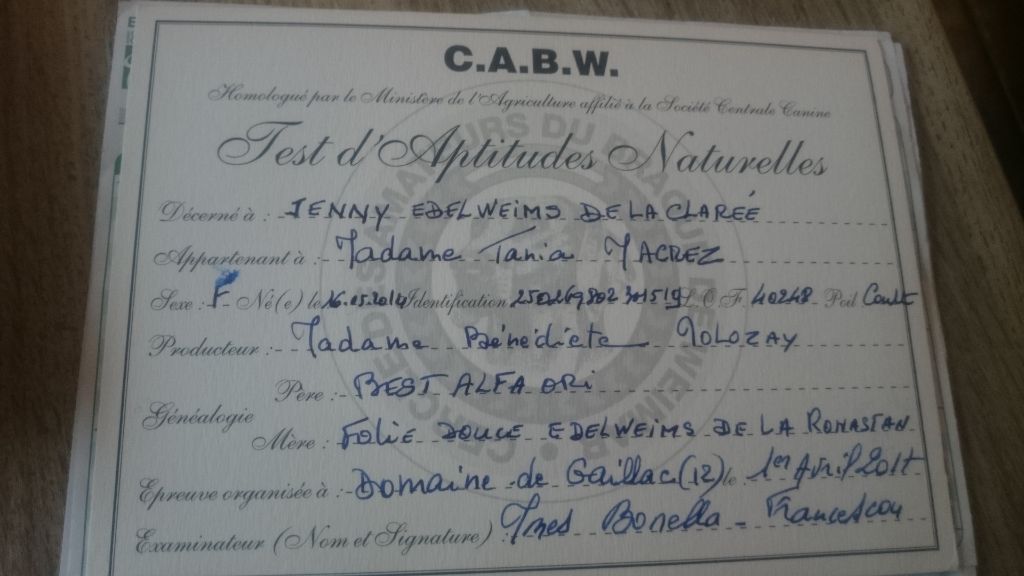 C.A.B.W.
Homologué par le Ministère de l'Agriculture affilié à la Société Centrale Canine
Test d'Aptitudes Naturelles
Décerné à : JENNY EDELWEIMS DE LA CLARÉE
Appartenant à : Madame Tania MACREZ
Sexe : F Né(e) le 16.05.2014 Identification 250269802 301519 L.O.F. 40248 Poil Court
Producteur : Madame Bénédicte MOLOZAY
Généalogie
Père : BEST ALFA ORI
Mère : FOLIE DOUCE EDELWEIMS DE LA ROMASTAN
Epreuve organisée à : Domaine de Gaillac (12) le 1er Avril 2017
Examinateur (Nom et Signature) Bonella - Francescou